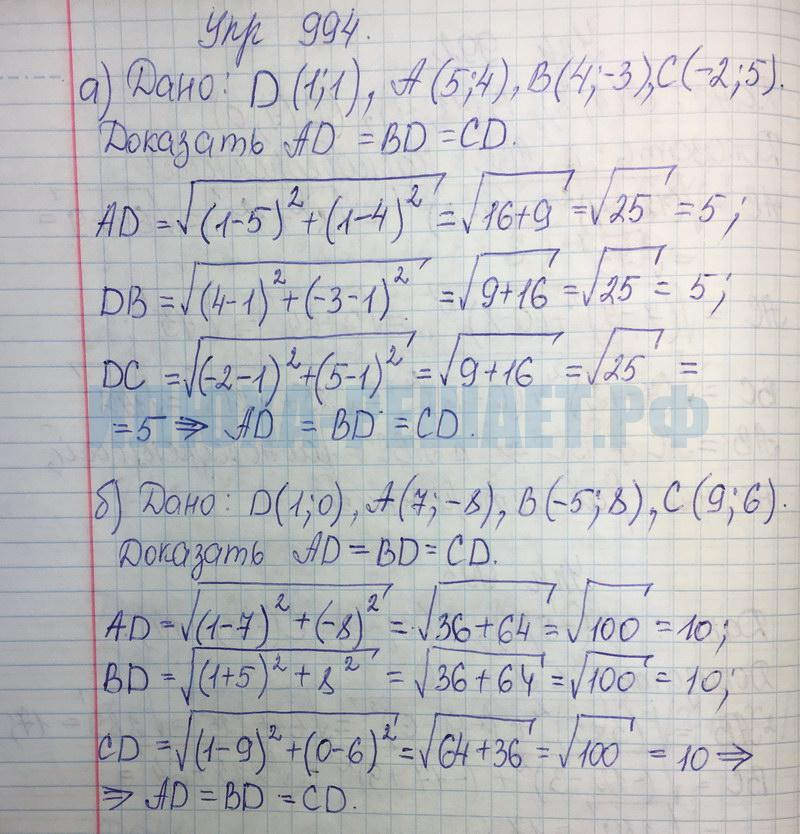 Упр 994.
а) Дано: D(1;1), A(5;4), B(4;-3), C(-2;5).
Доказать AD = BD = CD.
AD = √(1-5)² + (1-4)² = √16+9 = √25 = 5;
DB = √(4-1)² + (-3-1)² = √9+16 = √25 = 5;
DC = √(-2-1)² + (5-1)² = √9+16 = √25 =
= 5 ⇒ AD = BD = CD.
б) Дано: D(1;0), A(7;-8), B(-5;8), C(9;6).
Доказать AD = BD = CD.
AD = √(1-7)² + (-8)² = √36+64 = √100 = 10;
BD = √(1+5)² + 8² = √36+64 = √100 = 10;
CD = √(1-9)² + (0-6)² = √64+36 = √100 = 10 ⇒
⇒ AD = BD = CD.